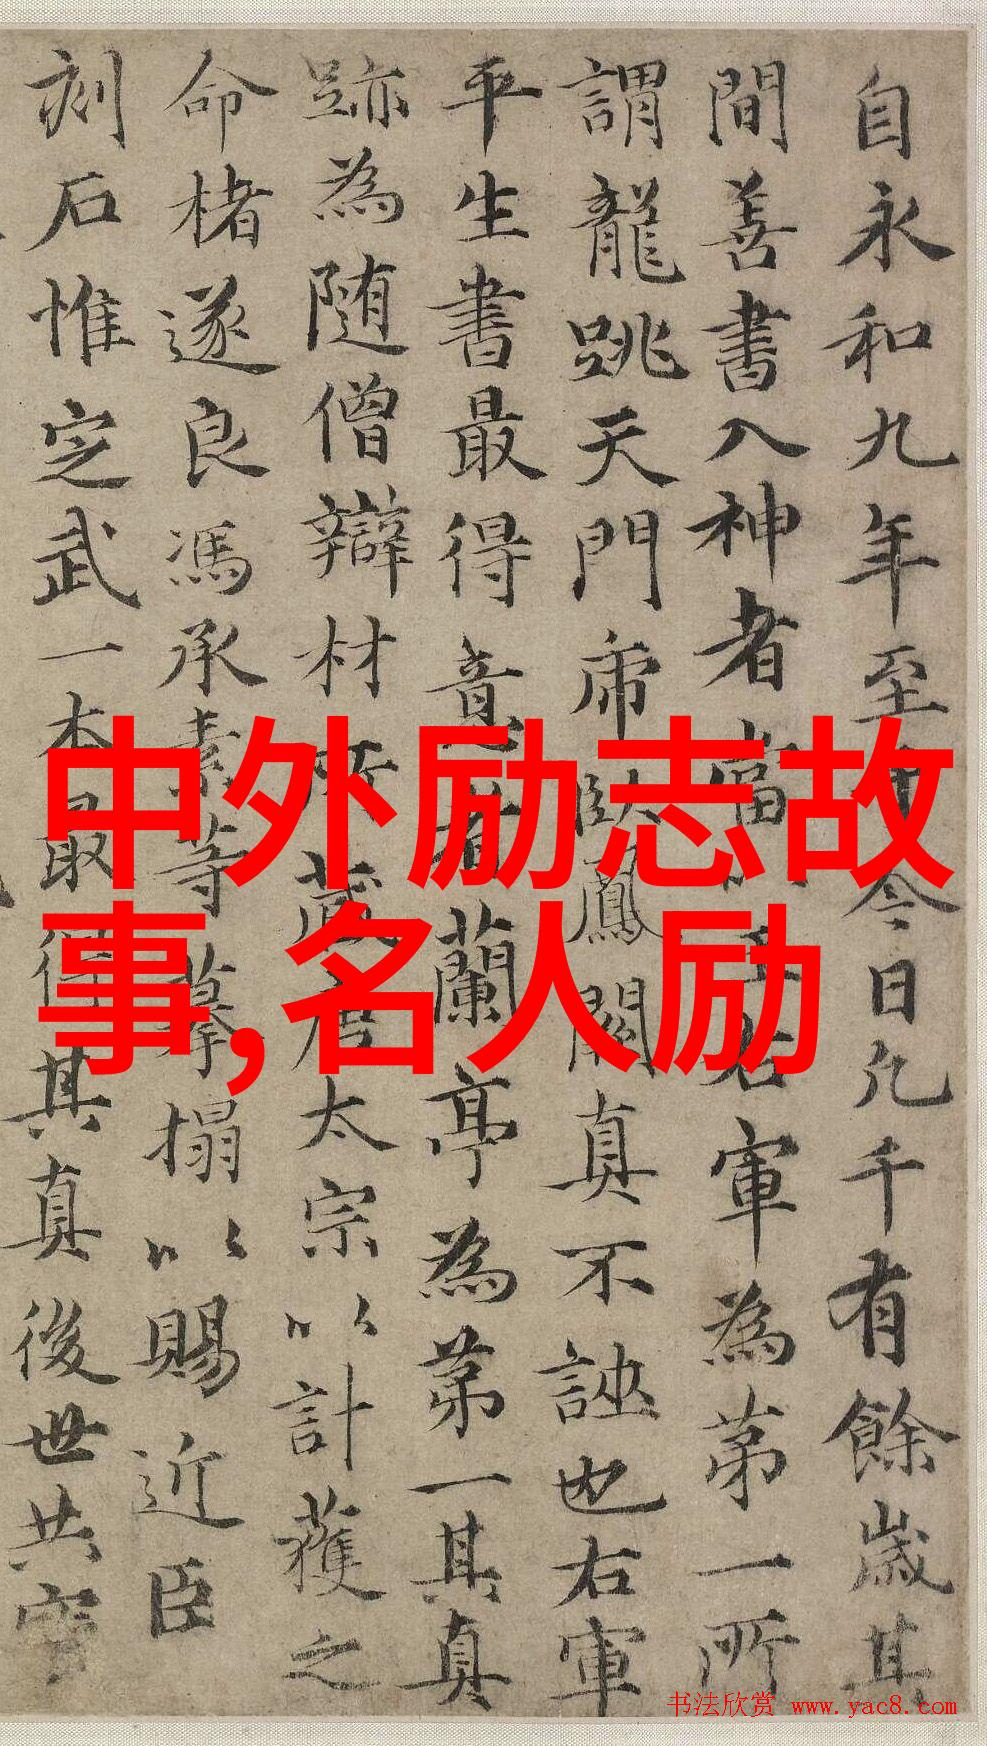 自永和九年至今日凡千有餘歲其
間善書入神者當以王右軍為第一所
謂龍跳天門虎臥鳳闕真不誣也右軍
平生書最得意者蘭亭為第一其真
跡為随僧辯材所藏唐太宗以計獲之
命楮遂良馮承素等摹搨以賜近臣
刻石惟定武一本最得其真後世共寳
中外励志故
事,名人励
书法欣赏 www.yac8.com